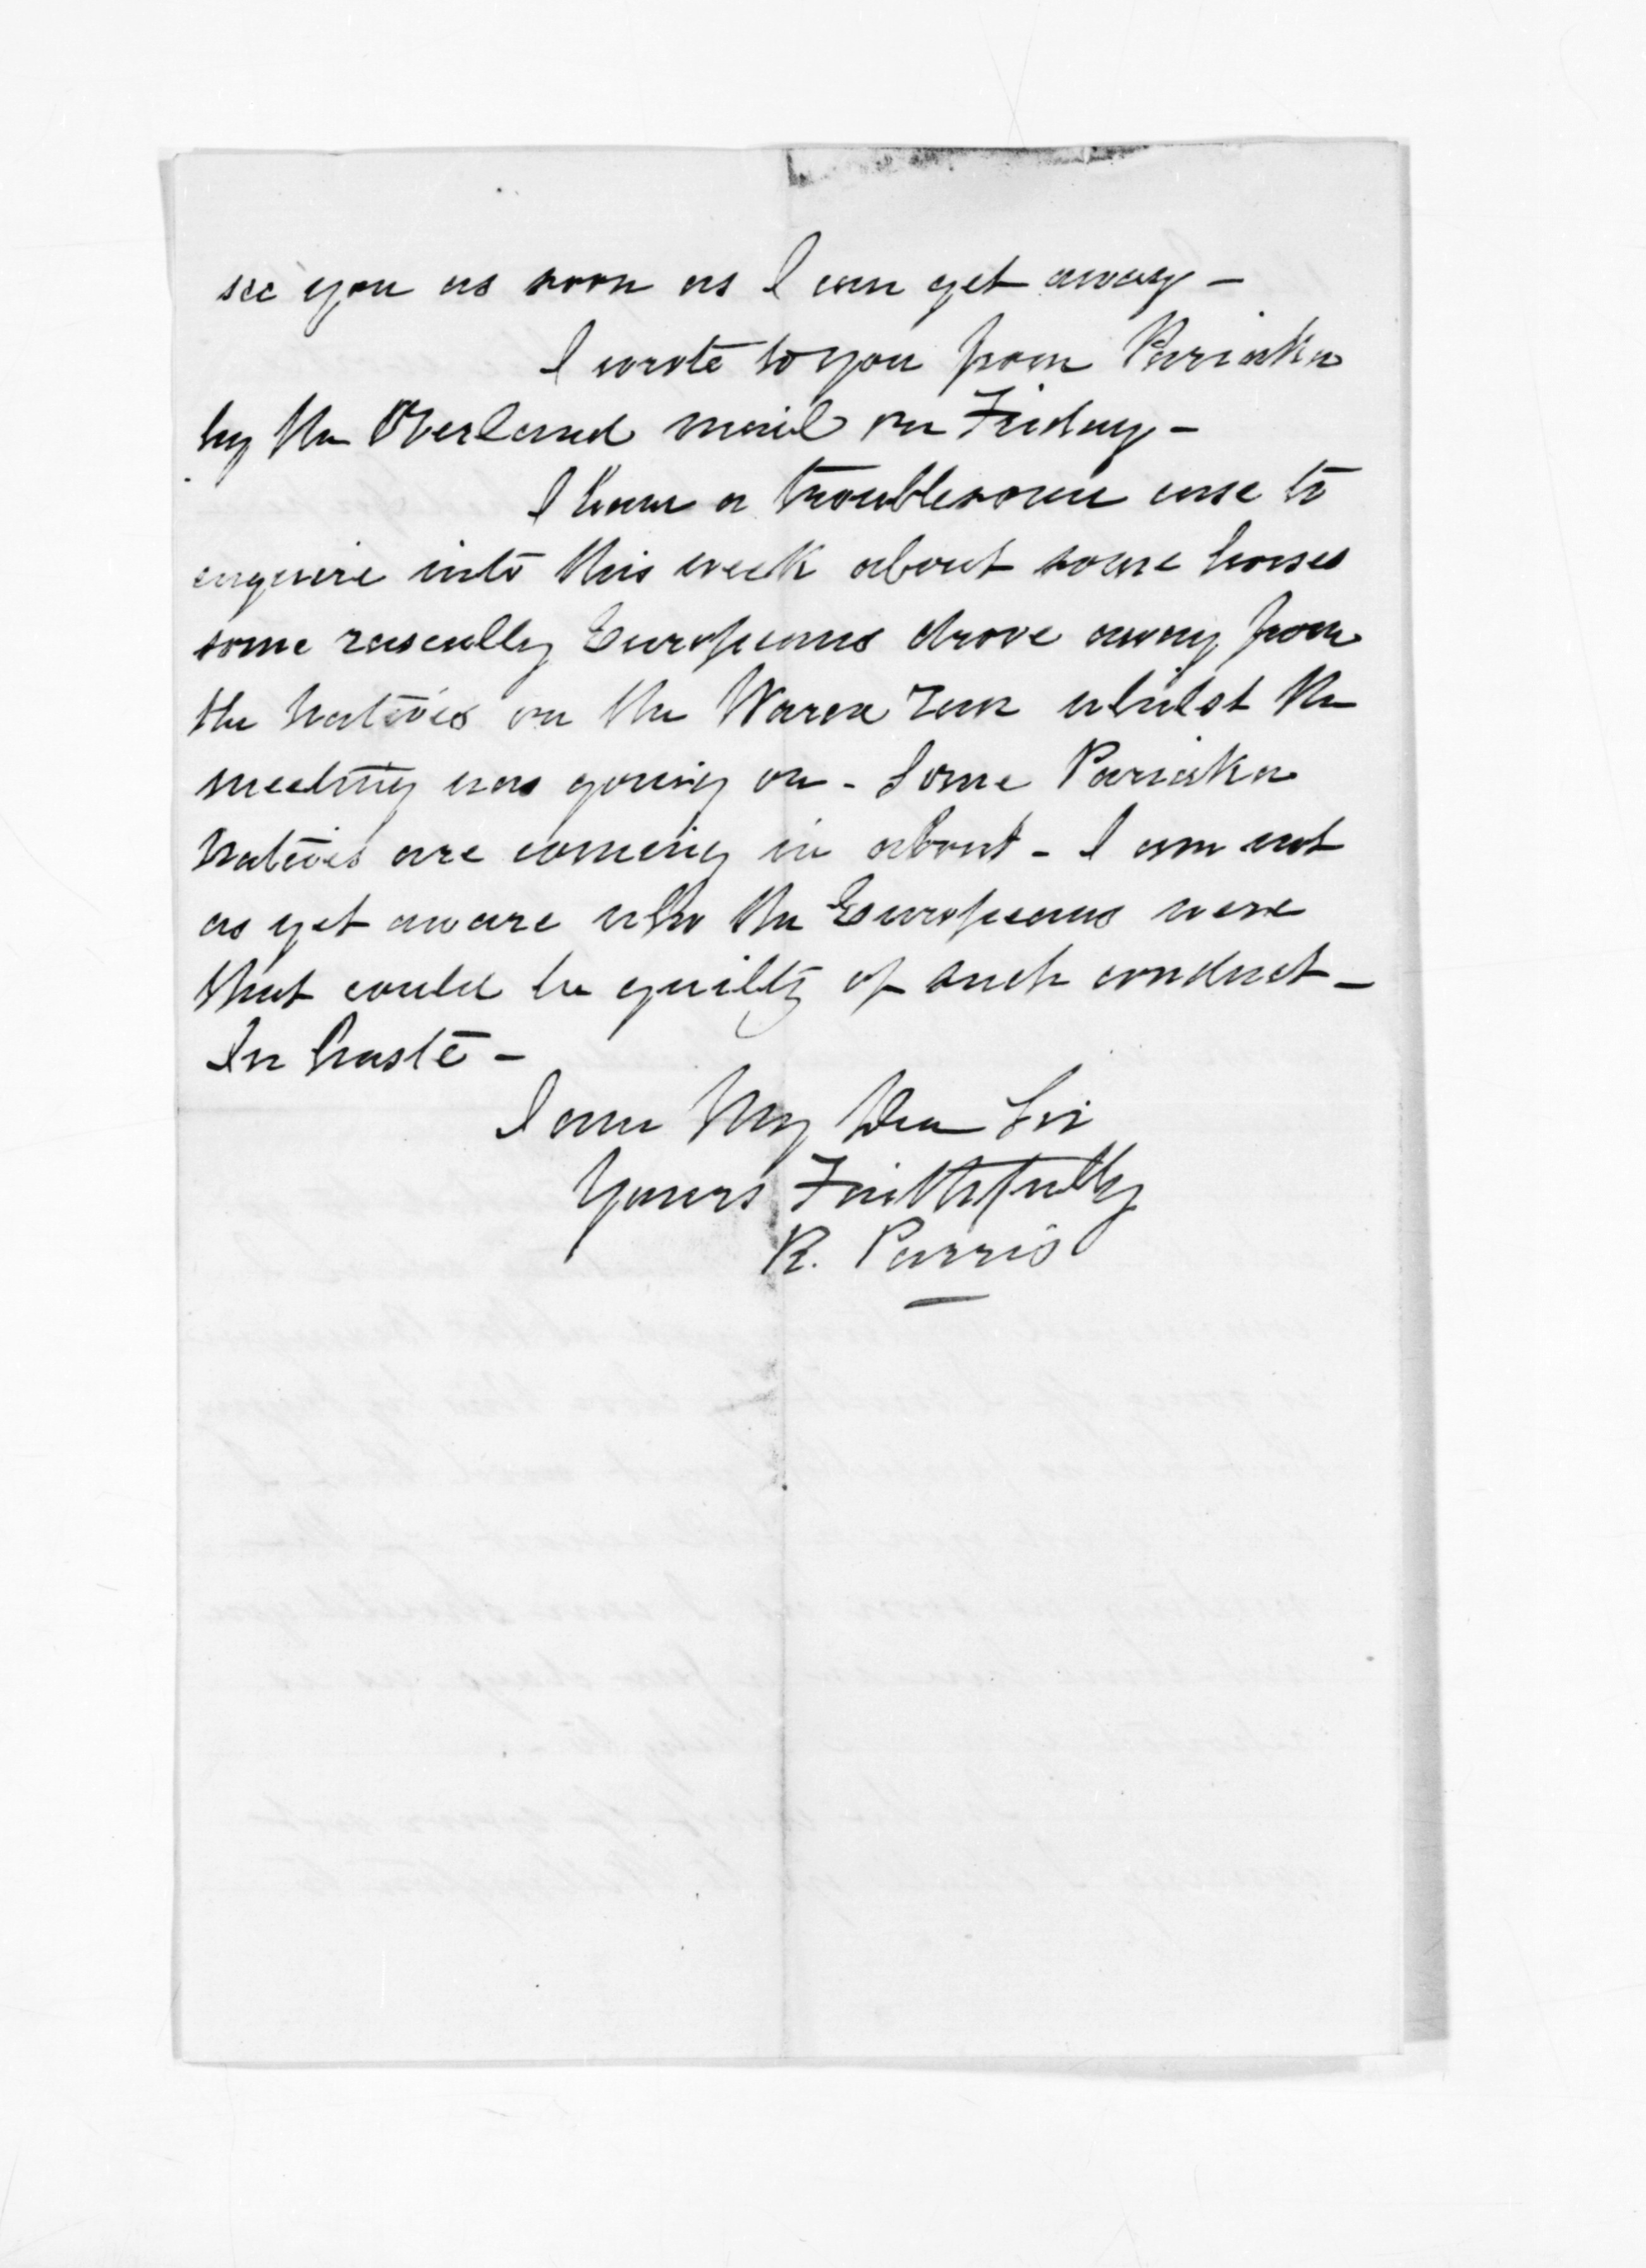 see you as soon as I can get away -
I wrote to you from Pariaka
by the Overland mail on Friday -
I have a troublesome case to
enquire into this week about some horses
some rascally Europeans drove away from
the natives on the Warea run whilst the
meeting was going on - Some Pariaka
natives are coming in about - I am not
as yet aware who the Europeans were
that could be guilty of such conduct -
In haste -
I am My Dear Sir
Yours Faithfully
R. Parris